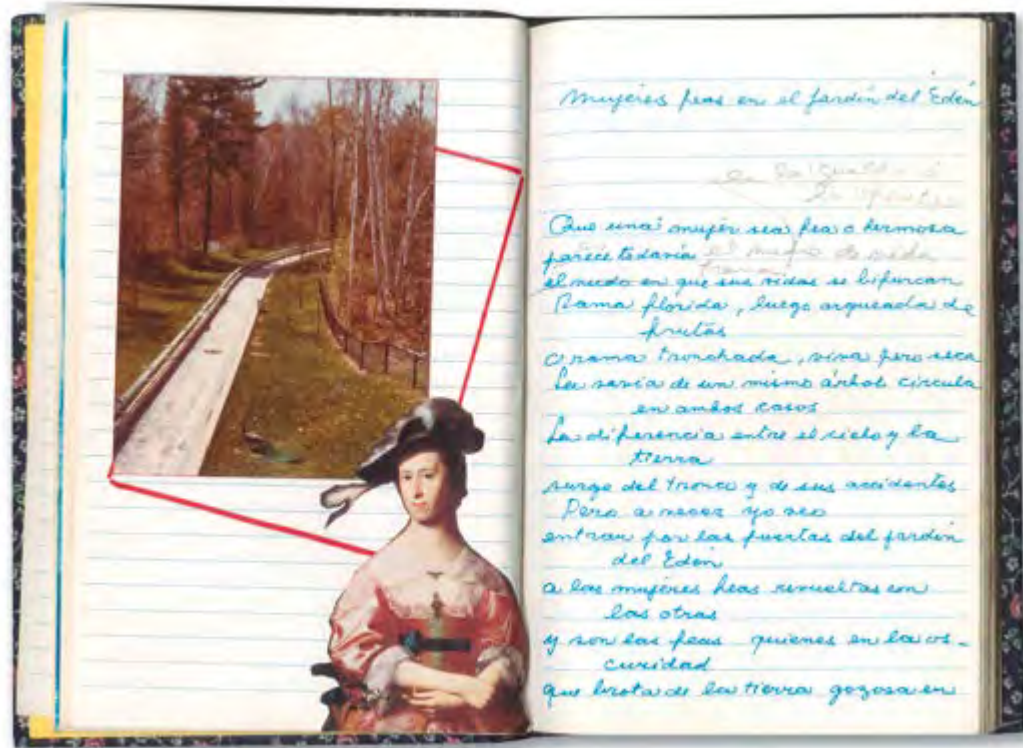 Mujeres feas en el jardín del Edén
en la igualdad
Que una mujer sea fea o hermosa
parece todavía
el nudo en que sus vidas se bifurcan
Rama florida, luego arqueada de
frutas
o rama tronchada, viva pero seca
La savia de un mismo árbol circula
en ambos casos
La diferencia entre el cielo y la
tierra
surge del tronco y de sus accidentes
Pero a veces yo veo
entrar por las puertas del jardín
del Edén
a las mujeres feas revueltas con
las otras
y son las feas quienes en la os-
curidad
que brota de la tierra gozosa en